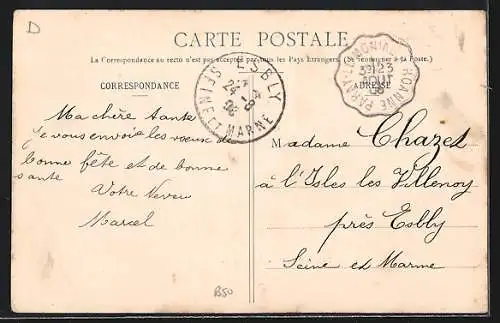 D
CARTE POSTALE
La Correspondance au verso n'est pas acceptée par tous les Pays Étrangers. (Se renseigner à la Poste.)
CORRESPONDANCE
ADRESSE
ESBLY
24 - 8
SEINE-ET-MARNE
ROANNE
23
AOUT
08
Ma chère tante
Je vous envoie les voeux de
bonne fête et de bonne
sante
Votre Neveu
Marcel
Madame Chazel
à l'Isles les Villenoy
près Esbly
Seine et Marne
B50